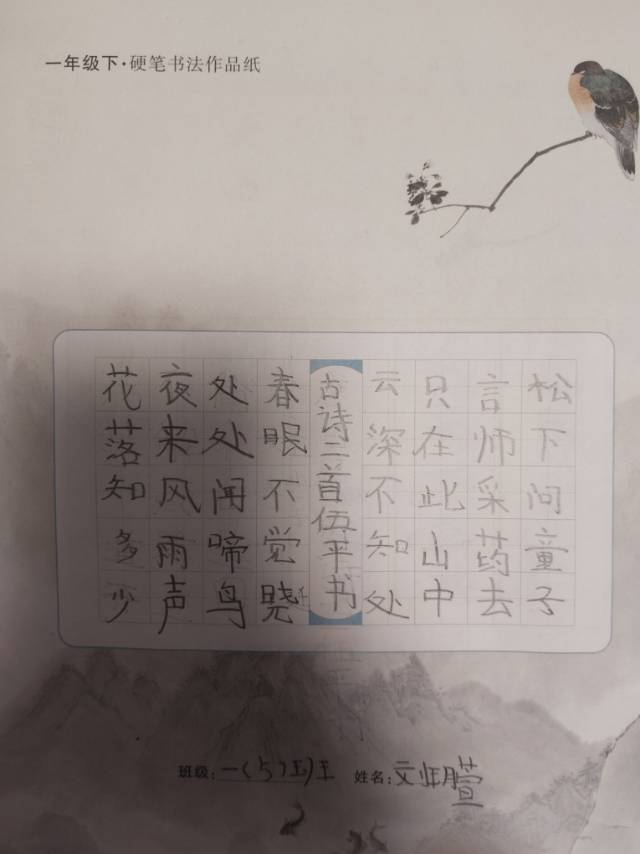 一年级下·硬笔书法作品纸
松下问童子
言师采药去
只在此山中
云深不知处
古诗二首伍平书
春眠不觉晓
处处闻啼鸟
夜来风雨声
花落知多少
班级:一(5)班 姓名: